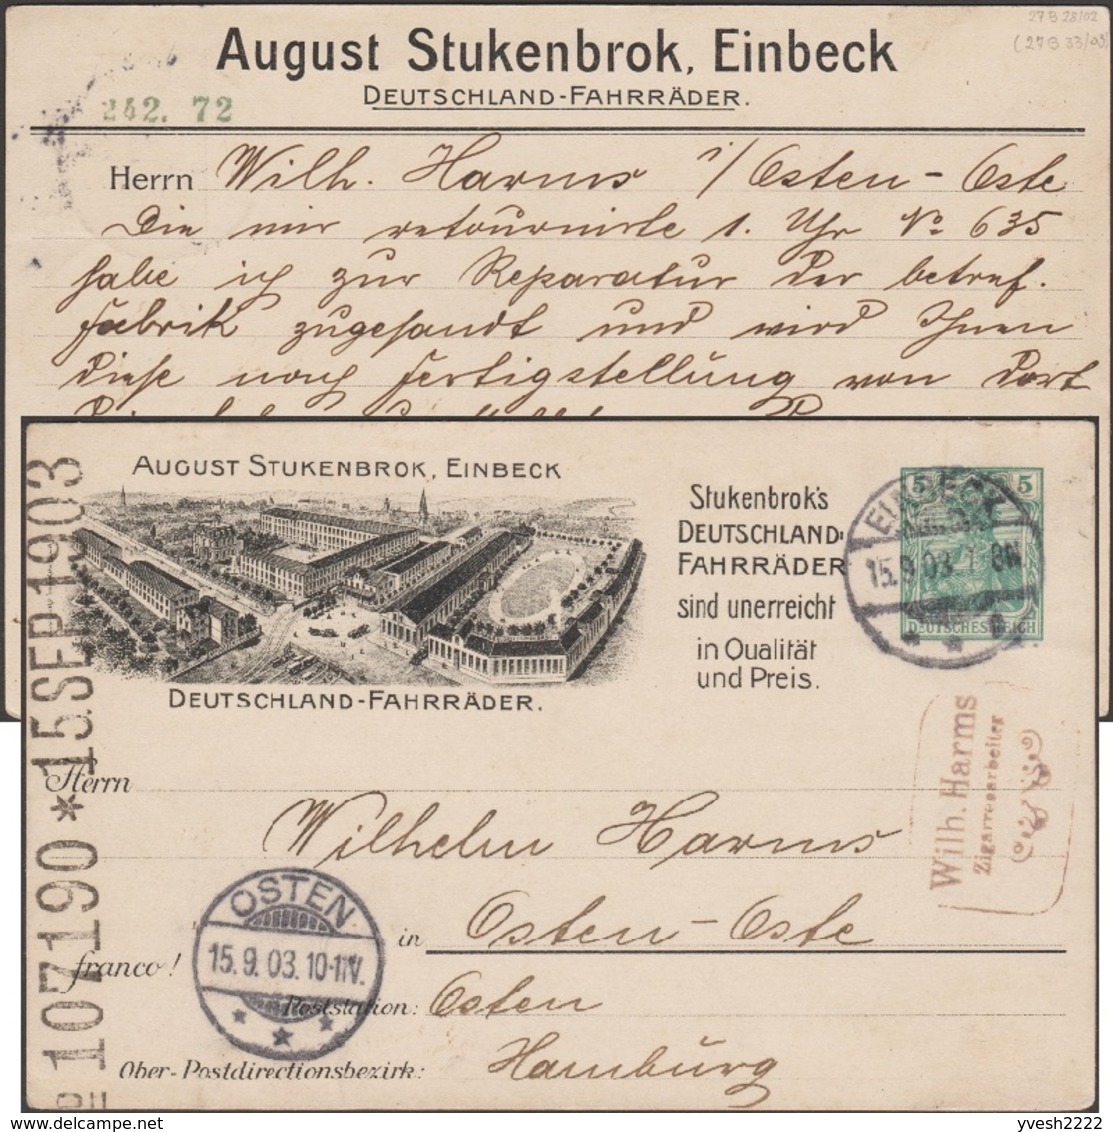 27 B 28/02
(27 B 33/03)
August Stukenbrok, Einbeck
DEUTSCHLAND-FAHRRÄDER.
242. 72
Herrn Wilh. Harms i/Osten-Oste
Die mir retournirte 1. Uhr No 635
habe ich zur Reparatur der betref.
Fabrik zugesandt und wird Ihnen
diese nach Fertigstellung von dort
AUGUST STUKENBROK, EINBECK
DEUTSCHLAND-FAHRRÄDER.
Stukenbrok's
DEUTSCHLAND-
FAHRRÄDER
sind unerreicht
in Qualität
und Preis.
5 5
DEUTSCHES REICH
EINBECK
15.9.03. 7-8N
107190 * 15.SEP.1903
Wilh. Harms
Zigarrenarbeiter
Herrn
Wilhelm Harms
in Osten-Oste
franco!
OSTEN
15.9.03.10-11V.
Poststation: Osten
Ober-Postdirectionsbezirk: Hamburg
yvesh2222